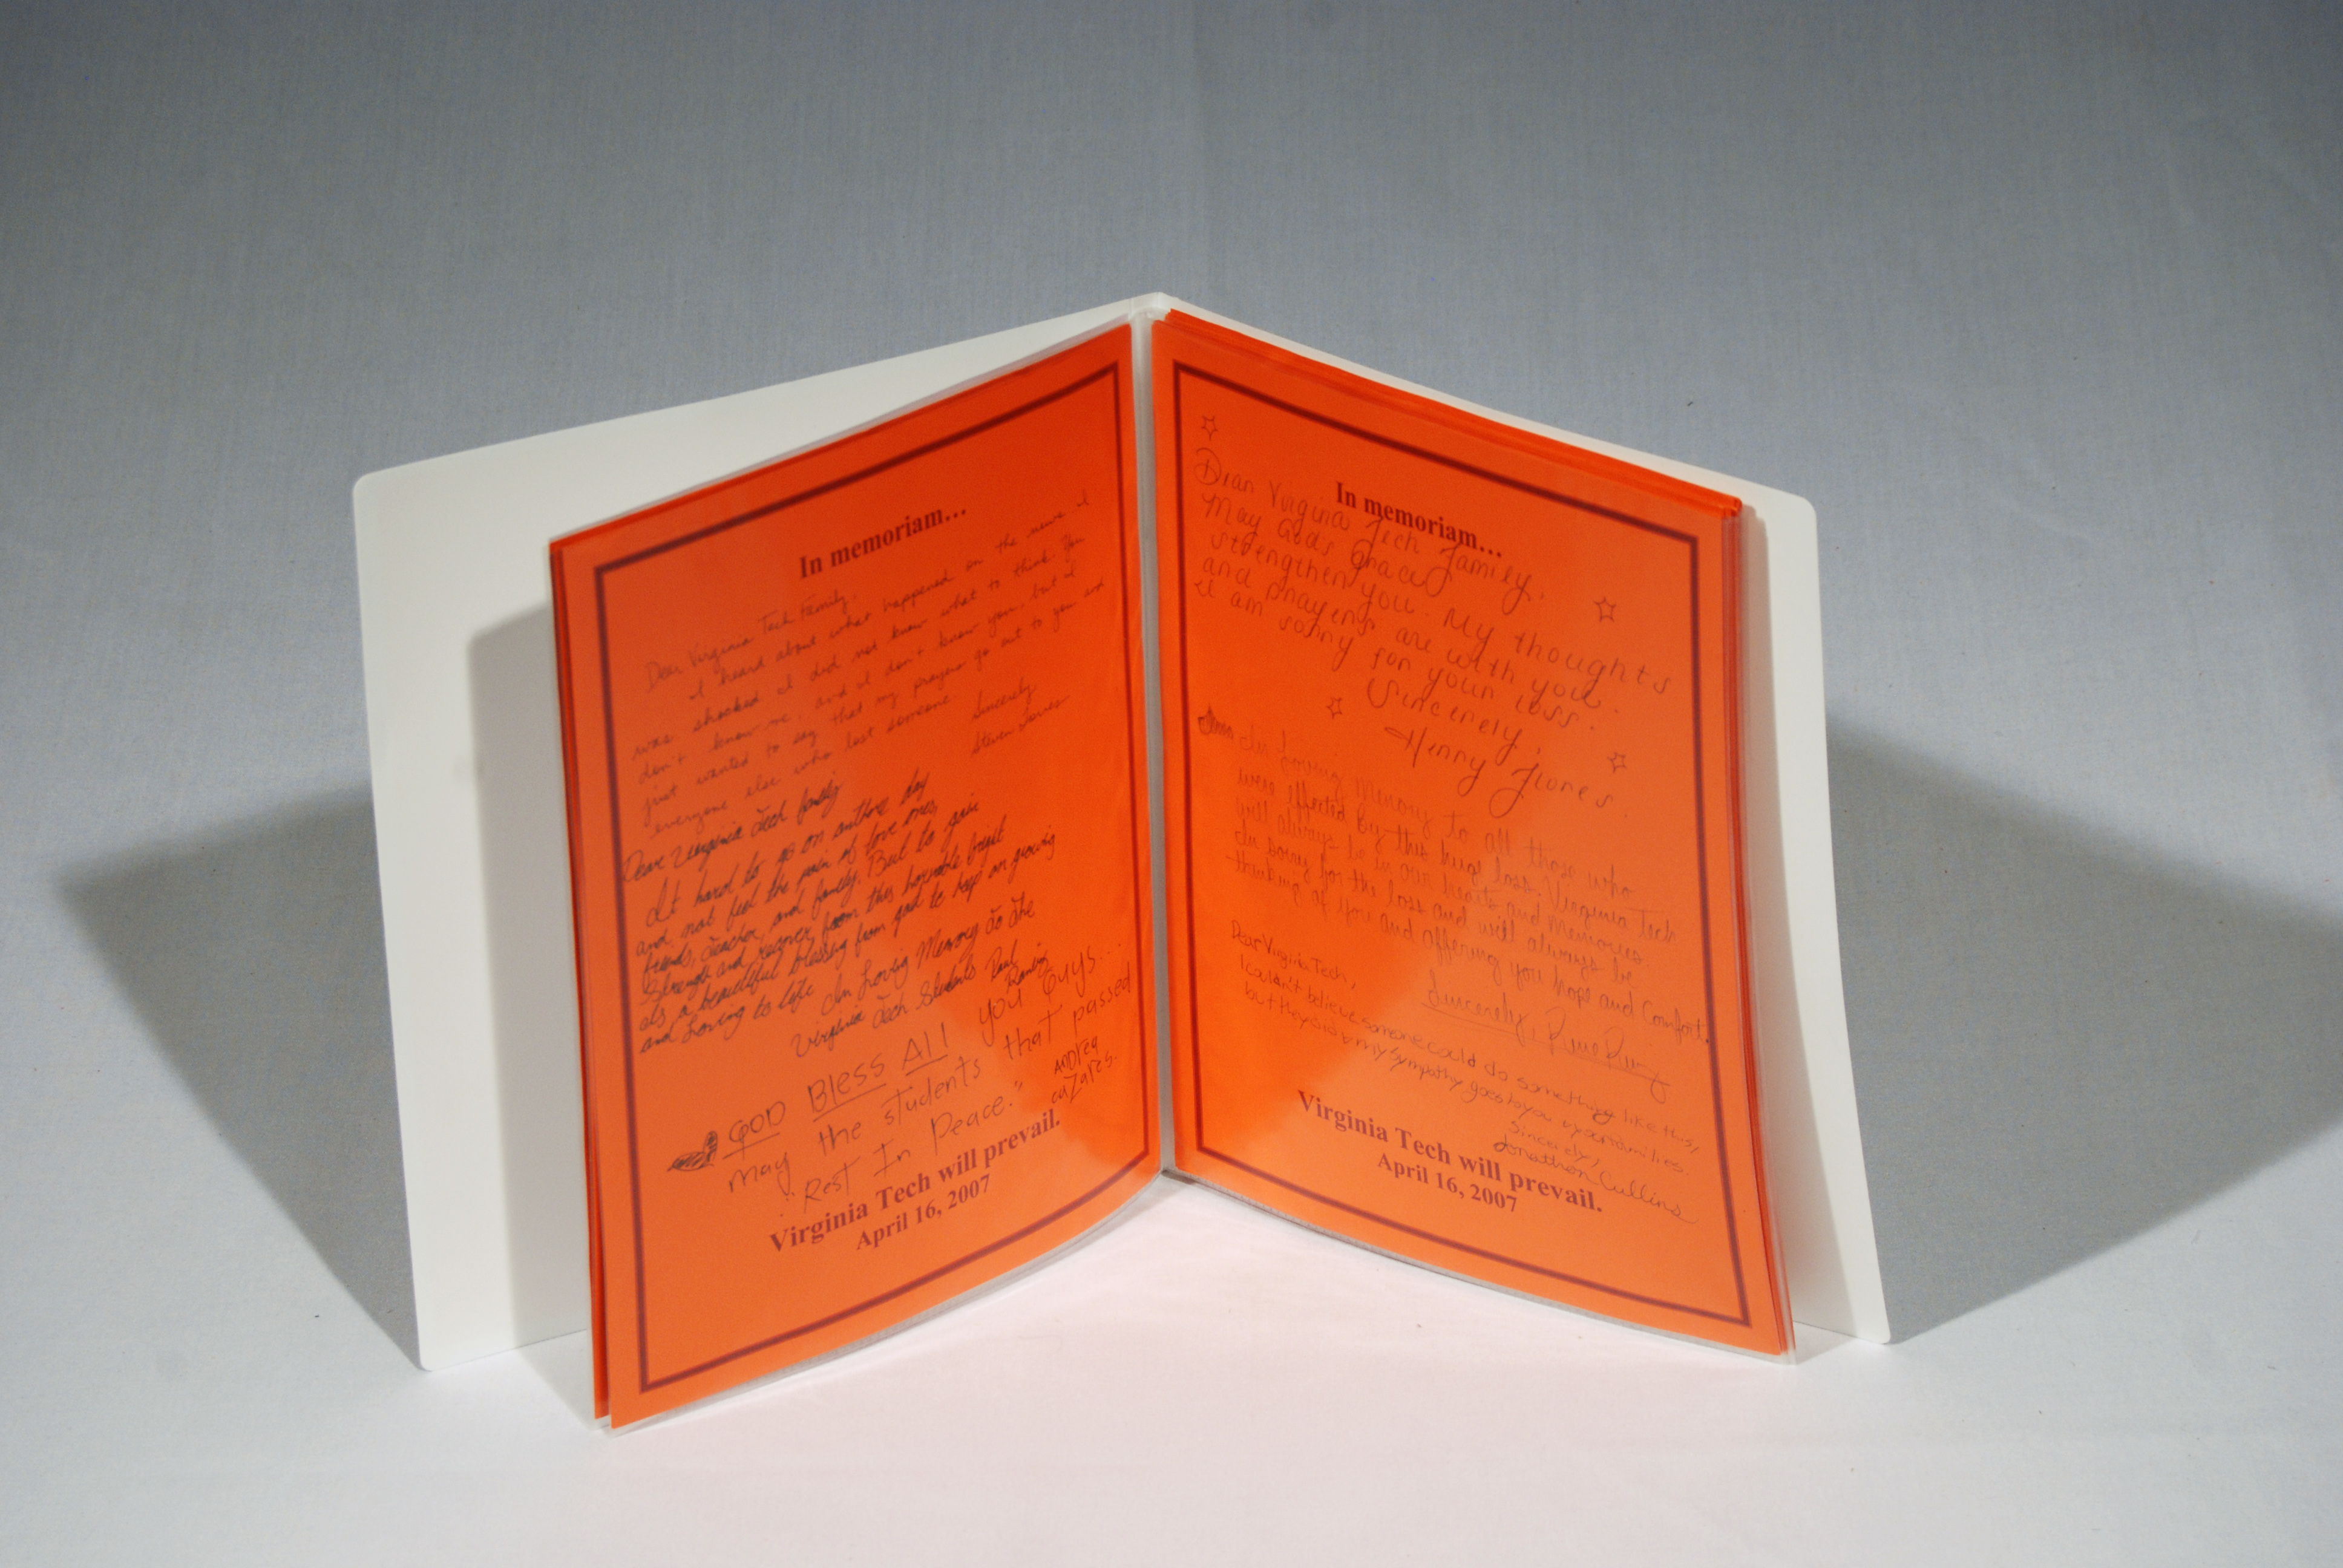 In memoriam...
Dear Virginia Tech Family,
I heard about what happened on the news I
was shocked I did not know what to think. You
don't know me, and I don't know you, but I
just wanted to say that my prayers go out to you and
everyone else who lost someone
Sincerely
Steven
Dear Virginia Tech family
It hard to go on anthore day
and not feel the pain of love ones,
friends, teacher, and family. But to gain
Strength and recover from this horrable
its a beautiful blessing from god to keep on growing
and loving to life
In Loving Memory To The
Virginia Tech Students Paul
GOD Bless All you guys...
May the students that passed
"Rest In Peace."
Andrea
cazares.
Virginia Tech will prevail.
April 16, 2007
In memoriam...
Dear Virginia Tech Family,
May God's Grace
strengthen you. My thoughts
and prayers are with you.
I am sorry for your loss.
Sincerely,
Henry Flores
In Loving Memory to all those who
were effected by this huge loss. Virginia Tech
will always be in our hearts and Memories.
Im sorry for the loss and will always be
thinking of you and offering you hope and Comfort.
Sincerely,
Dear Virginia Tech,
I couldn't believe someone could do something like this,
but they did my sympathy goes to you families.
Sincerely,
Jonathon Cullins
Virginia Tech will prevail.
April 16, 2007